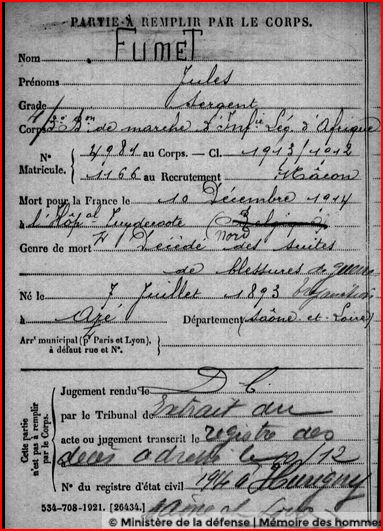 PARTIE A REMPLIR PAR LE CORPS.
Nom FUMET
Prénoms Jules
Grade Sergent
Corps Bon de marche d'Infie Lég. d'Afrique
N° 2981 au Corps. — Cl. 1913/1912
Matricule. 1166 au Recrutement Mâcon
Mort pour la France le 10 Décembre 1914
à l'Hôpal Zuydcote (Belgique)
Nord
Genre de mort Décédé des suites
de blessures de guerre
Né le 7 Juillet 1893
à Azé Département (Saône-et-Loire)
Arrt municipal (pr Paris et Lyon),
à défaut rue et N°.
Cette partie
n'est pas à remplir
par le Corps.
Jugement rendu le D.C.
par le Tribunal de Extrait du
acte ou jugement transcrit le registre des
décès adressé le 12
N° du registre d'état civil à Hurigny
Saône et Loire
534-708-1921. [26434.]
© Ministère de la défense | Mémoire des hommes